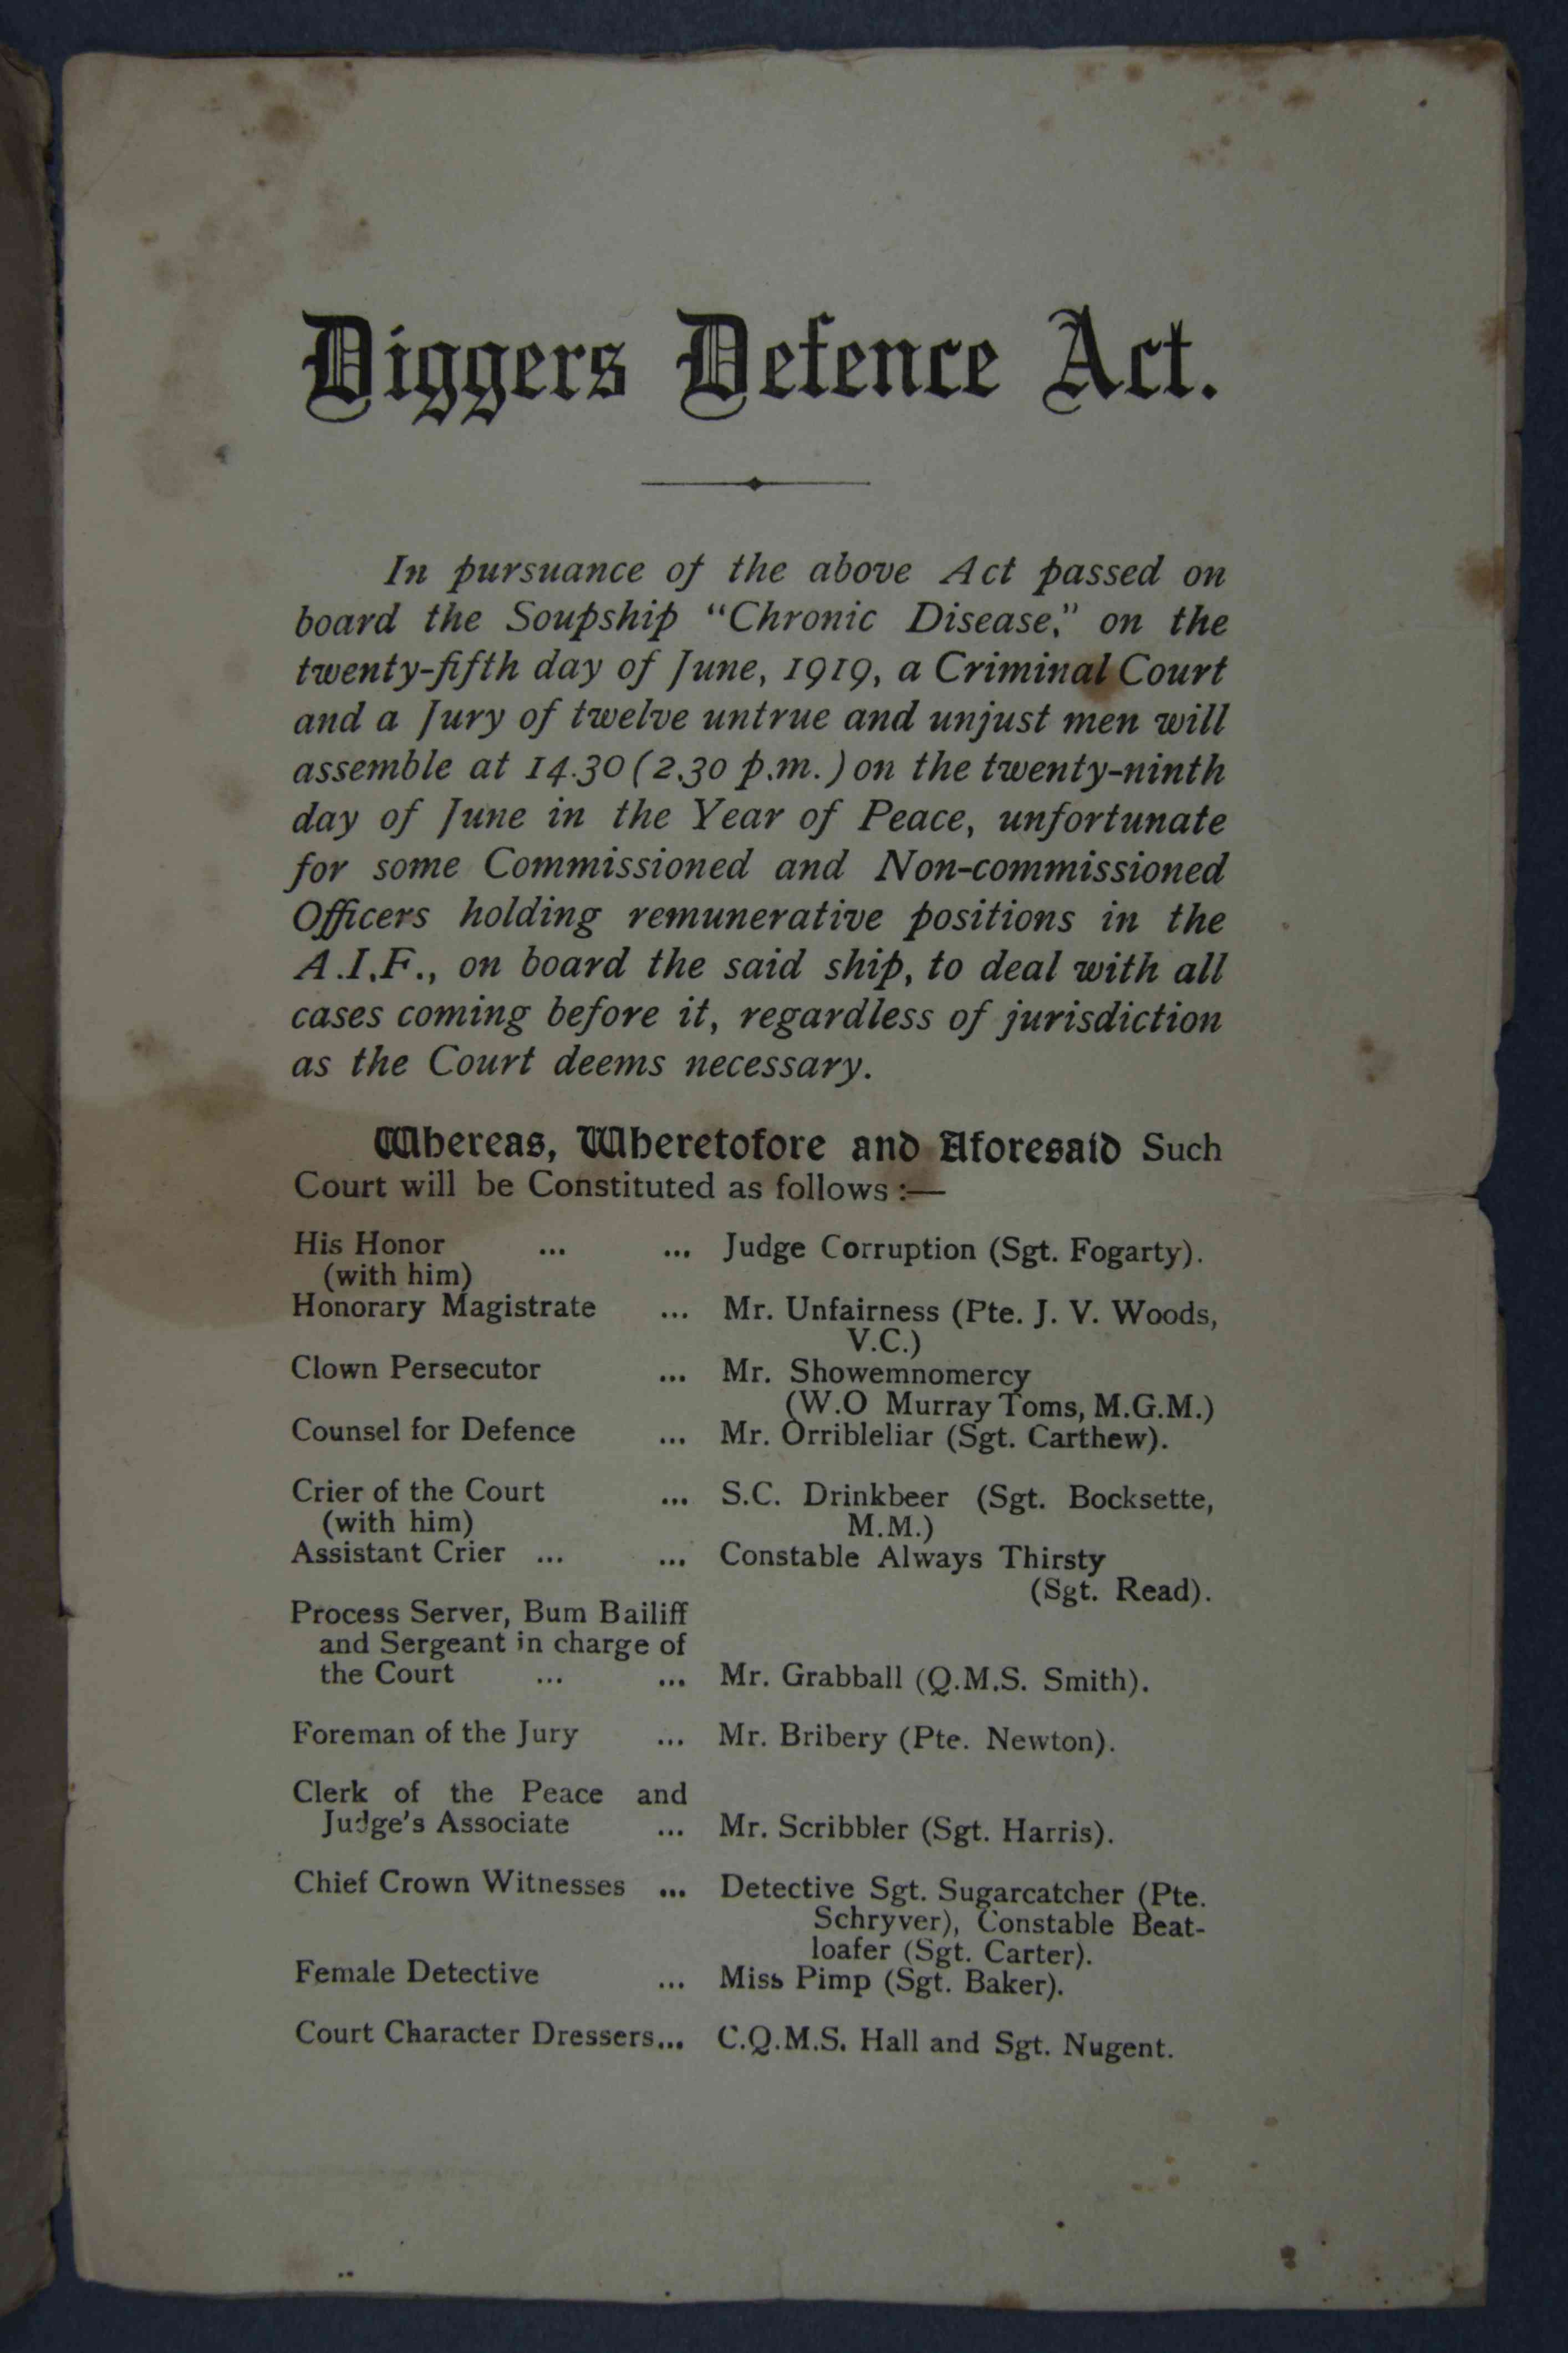 Diggers Defence Act.
In pursuance of the above Act passed on
board the Soupship "Chronic Disease," on the
twenty-fifth day of June, 1919, a Criminal Court
and a Jury of twelve untrue and unjust men will
assemble at 14.30 (2.30 p.m.) on the twenty-ninth
day of June in the Year of Peace, unfortunate
for some Commissioned and Non-commissioned
Officers holding remunerative positions in the
A.I.F., on board the said ship, to deal with all
cases coming before it, regardless of jurisdiction
as the Court deems necessary.
Whereas, Wheretofore and Aforesaid Such
Court will be Constituted as follows :—
His Honor ... ... Judge Corruption (Sgt. Fogarty).
(with him)
Honorary Magistrate ... Mr. Unfairness (Pte. J. V. Woods,
V.C.)
Clown Persecutor ... Mr. Showemnomercy
(W.O Murray Toms, M.G.M.)
Counsel for Defence ... Mr. Orribleliar (Sgt. Carthew).
Crier of the Court ... S.C. Drinkbeer (Sgt. Bocksette,
(with him) M.M.)
Assistant Crier ... ... Constable Always Thirsty
(Sgt. Read).
Process Server, Bum Bailiff
and Sergeant in charge of
the Court ... ... Mr. Grabball (Q.M.S. Smith).
Foreman of the Jury ... Mr. Bribery (Pte. Newton).
Clerk of the Peace and
Judge's Associate ... Mr. Scribbler (Sgt. Harris).
Chief Crown Witnesses ... Detective Sgt. Sugarcatcher (Pte.
Schryver), Constable Beat-
loafer (Sgt. Carter).
Female Detective ... Miss Pimp (Sgt. Baker).
Court Character Dressers... C.Q.M.S. Hall and Sgt. Nugent.